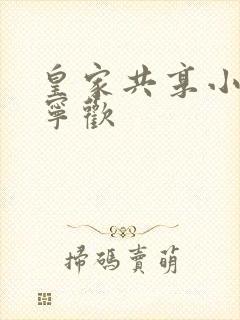 皇家共享小
寧歡
掃碼賣萌